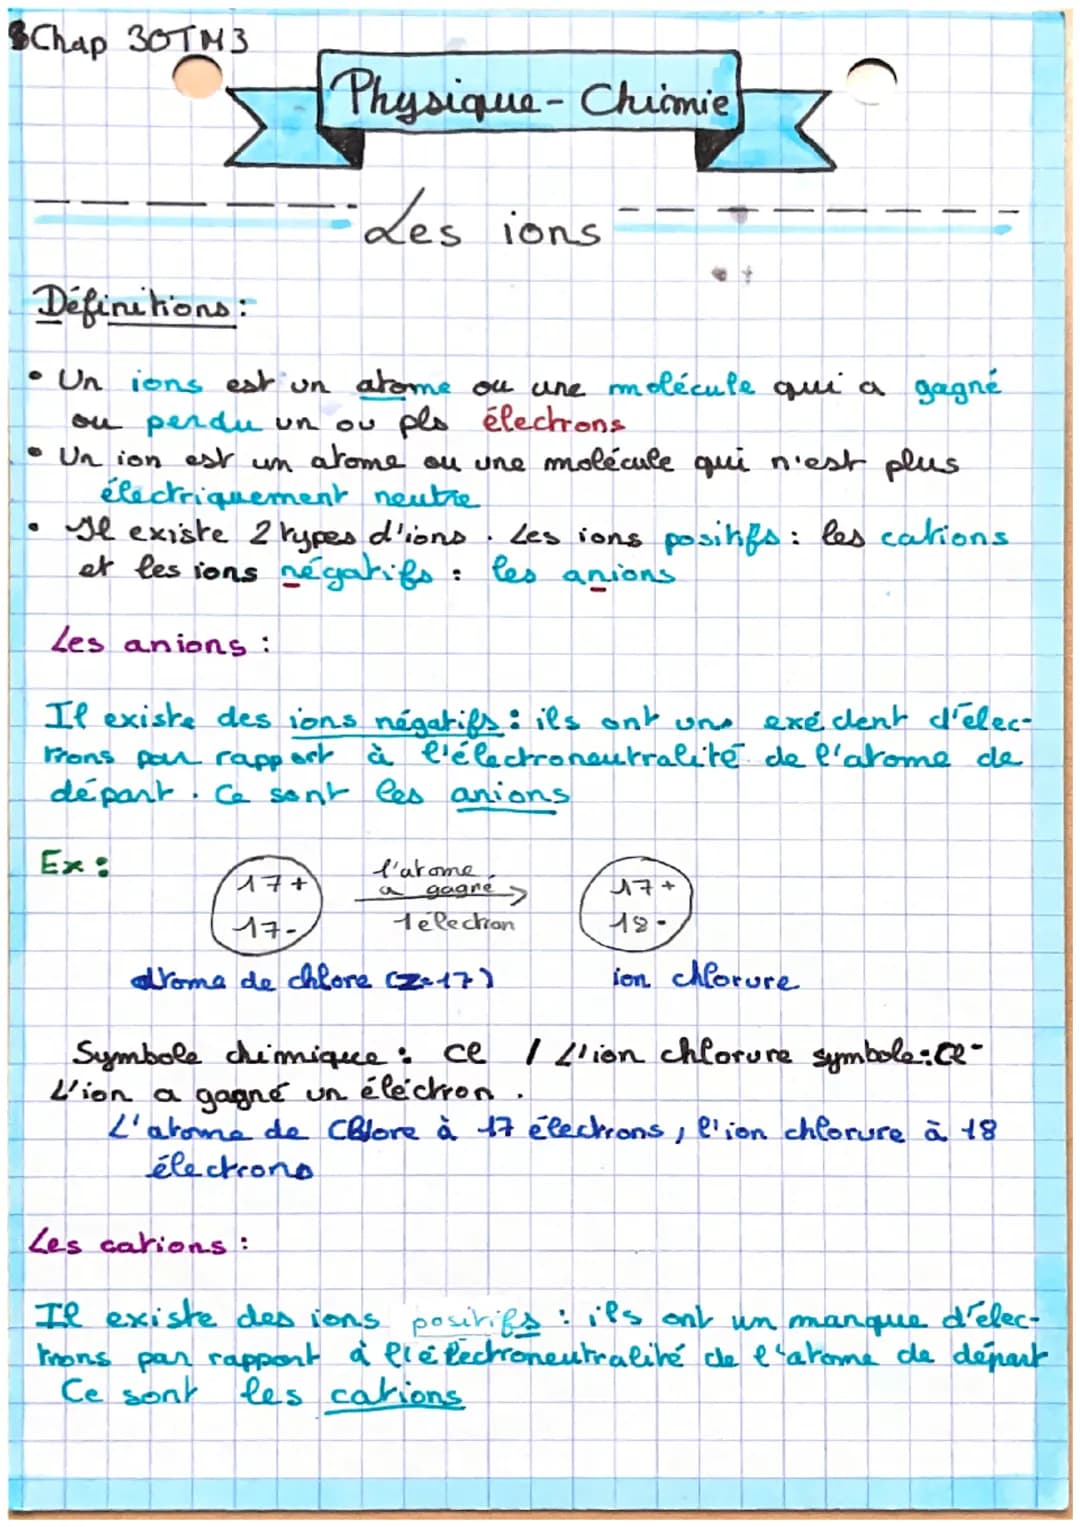 Chap 3OTM3
Physique-Chimie
Les ions
Définitions:
• Un ions est un atome ou une molécule qui a gagné
ou perdu un ou pls électrons
• Un ion est un atome ou une molécule qui n'est plus
électriquement neutre
• Il existe 2 types d'ions. Les ions positifs: les cations
et les ions négatifs: les anions
Les anions:
Il existe des ions négatifs: ils ont un exédent d'élec-
trons par rapport à l'électroneutralité de l'atome de
départ. Ce sont les anions
Ex:
17+
17-
l'atome
a gagné
1 électron
17+
18-
atome de chlore (Z=17)
ion chlorure
Symbole chimique: Cl / L'ion chlorure symbole: Cl-
L'ion a gagné un éléctron.
L'atome de Chlore à 17 électrons, l'ion chlorure à 18
électrons
Les cations:
Il existe des ions positifs: ils ont un manque d'élec-
trons par rapport à l'électroneutralité de l'atome de départ
Ce sont les cations